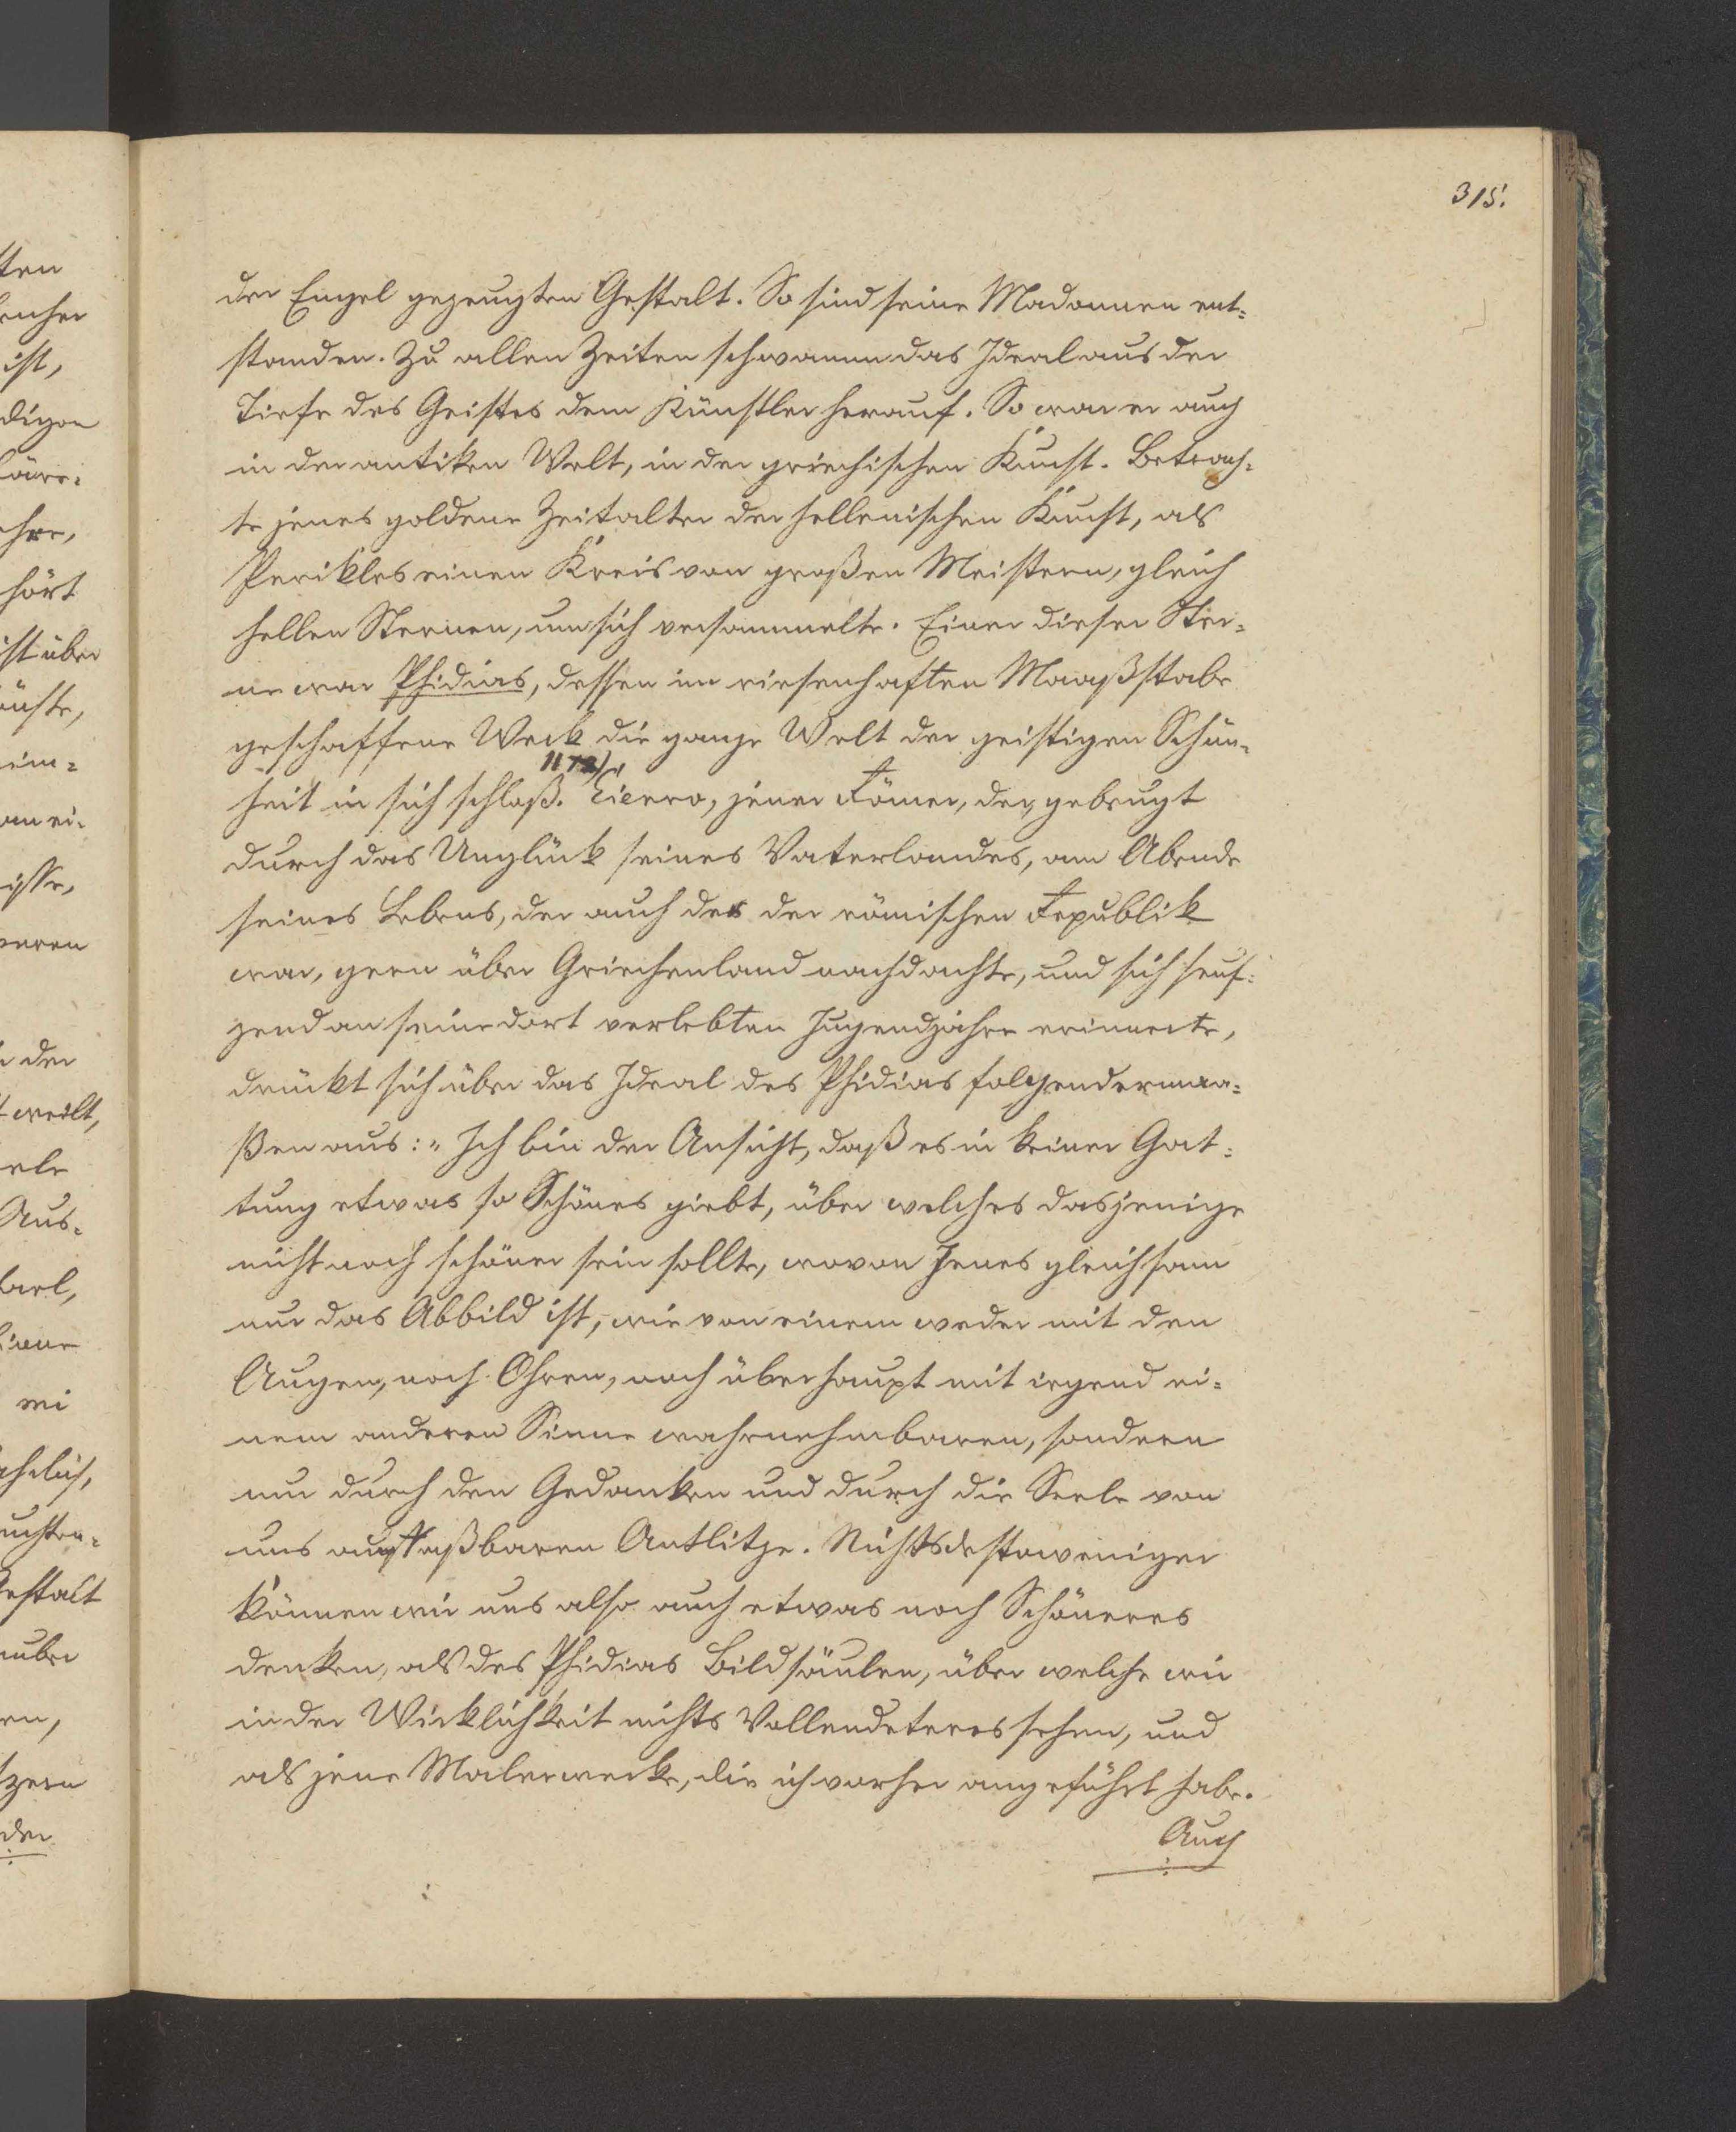 315.
der Engel gezeugten Gestalt. So sind seine Madonnen ent-
standen. Zu allen Zeiten schwamm das Ideal aus der
Tiefe des Geistes dem Künstler herauf. So war er auch
in der antiken Welt, in der griechischen Kunst. Betrach-
te jenes goldene Zeitalter der hellenischen Kunst, als
Perikles einen Kreis von großen Meistern, gleich
hellen Sternen, um sich versammelte. Einer dieser Ster-
ne war Phidias, dessen im riesenhaften Maaßstabe
geschaffene Werk die ganze Welt der geistigen Schön-
heit in sich schloß. Cicero, jener Römer, der, gebeugt
durch das Unglück seines Vaterlandes, am Abende
seines Lebens, der auch der der römischen Republik
war, gern über Griechenland nachdachte, und sich seuf-
zend an seine dort verlebten Jugendjahre erinnerte,
drückt sich über das Ideal des Phidias folgenderma-
ßen aus: „Ich bin der Ansicht, daß es in keiner Gat-
tung etwas so Schönes giebt, über welches dasjenige
nicht noch schöner sein sollte, wovon Jenes gleichsam
nur das Abbild ist, wie von einem weder mit den
Augen, noch Ohren, noch überhaupt mit irgend ei-
nem anderen Sinne wahrnehmbaren, sondern
nur durch den Gedanken und durch die Seele von
uns auffaßbaren Antlitze. Nichtsdestoweniger
können wir uns also auch etwas noch Schöneres
denken, als des Phidias Bildsäulen, über welche wir
in der Wirklichkeit nichts Vollendeteres sehen, und
als jene Malerwerke, die ich vorher angeführt habe.
Auch